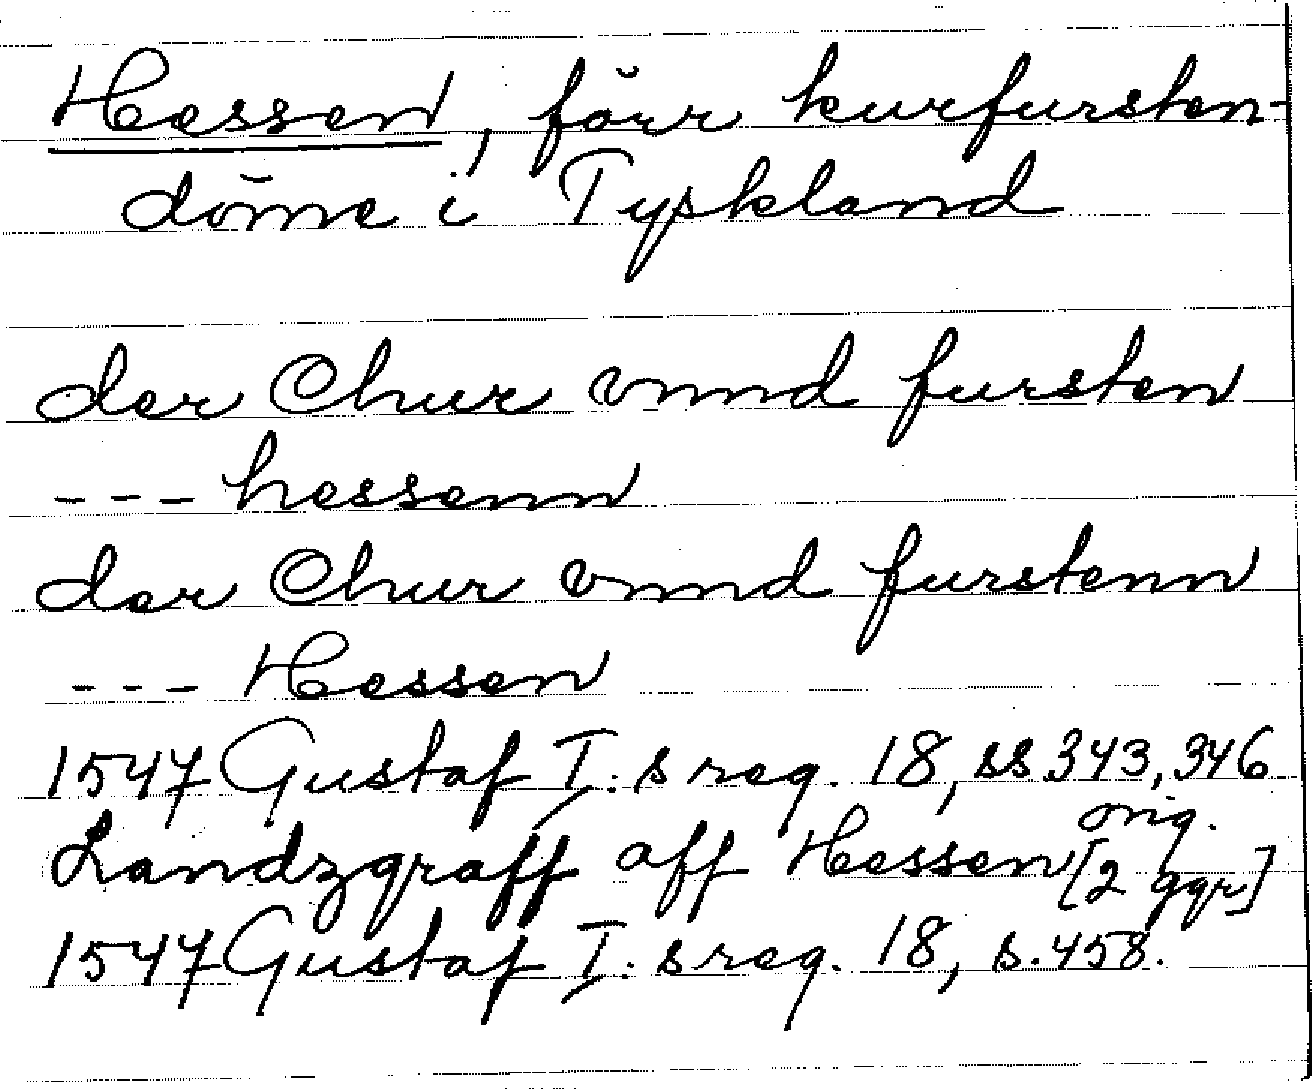 Hessen, förr kurfursten-
döme i Tyskland
der Chur vnnd fursten
--- hessenn
der Chur vnnd furstenn
--- Hessen
1547 Gustaf I:s reg. 18, ss 343, 346
orig.
Landzgraff aff Hessen [2 ggr]
1547 Gustaf I:s reg. 18, s. 458.